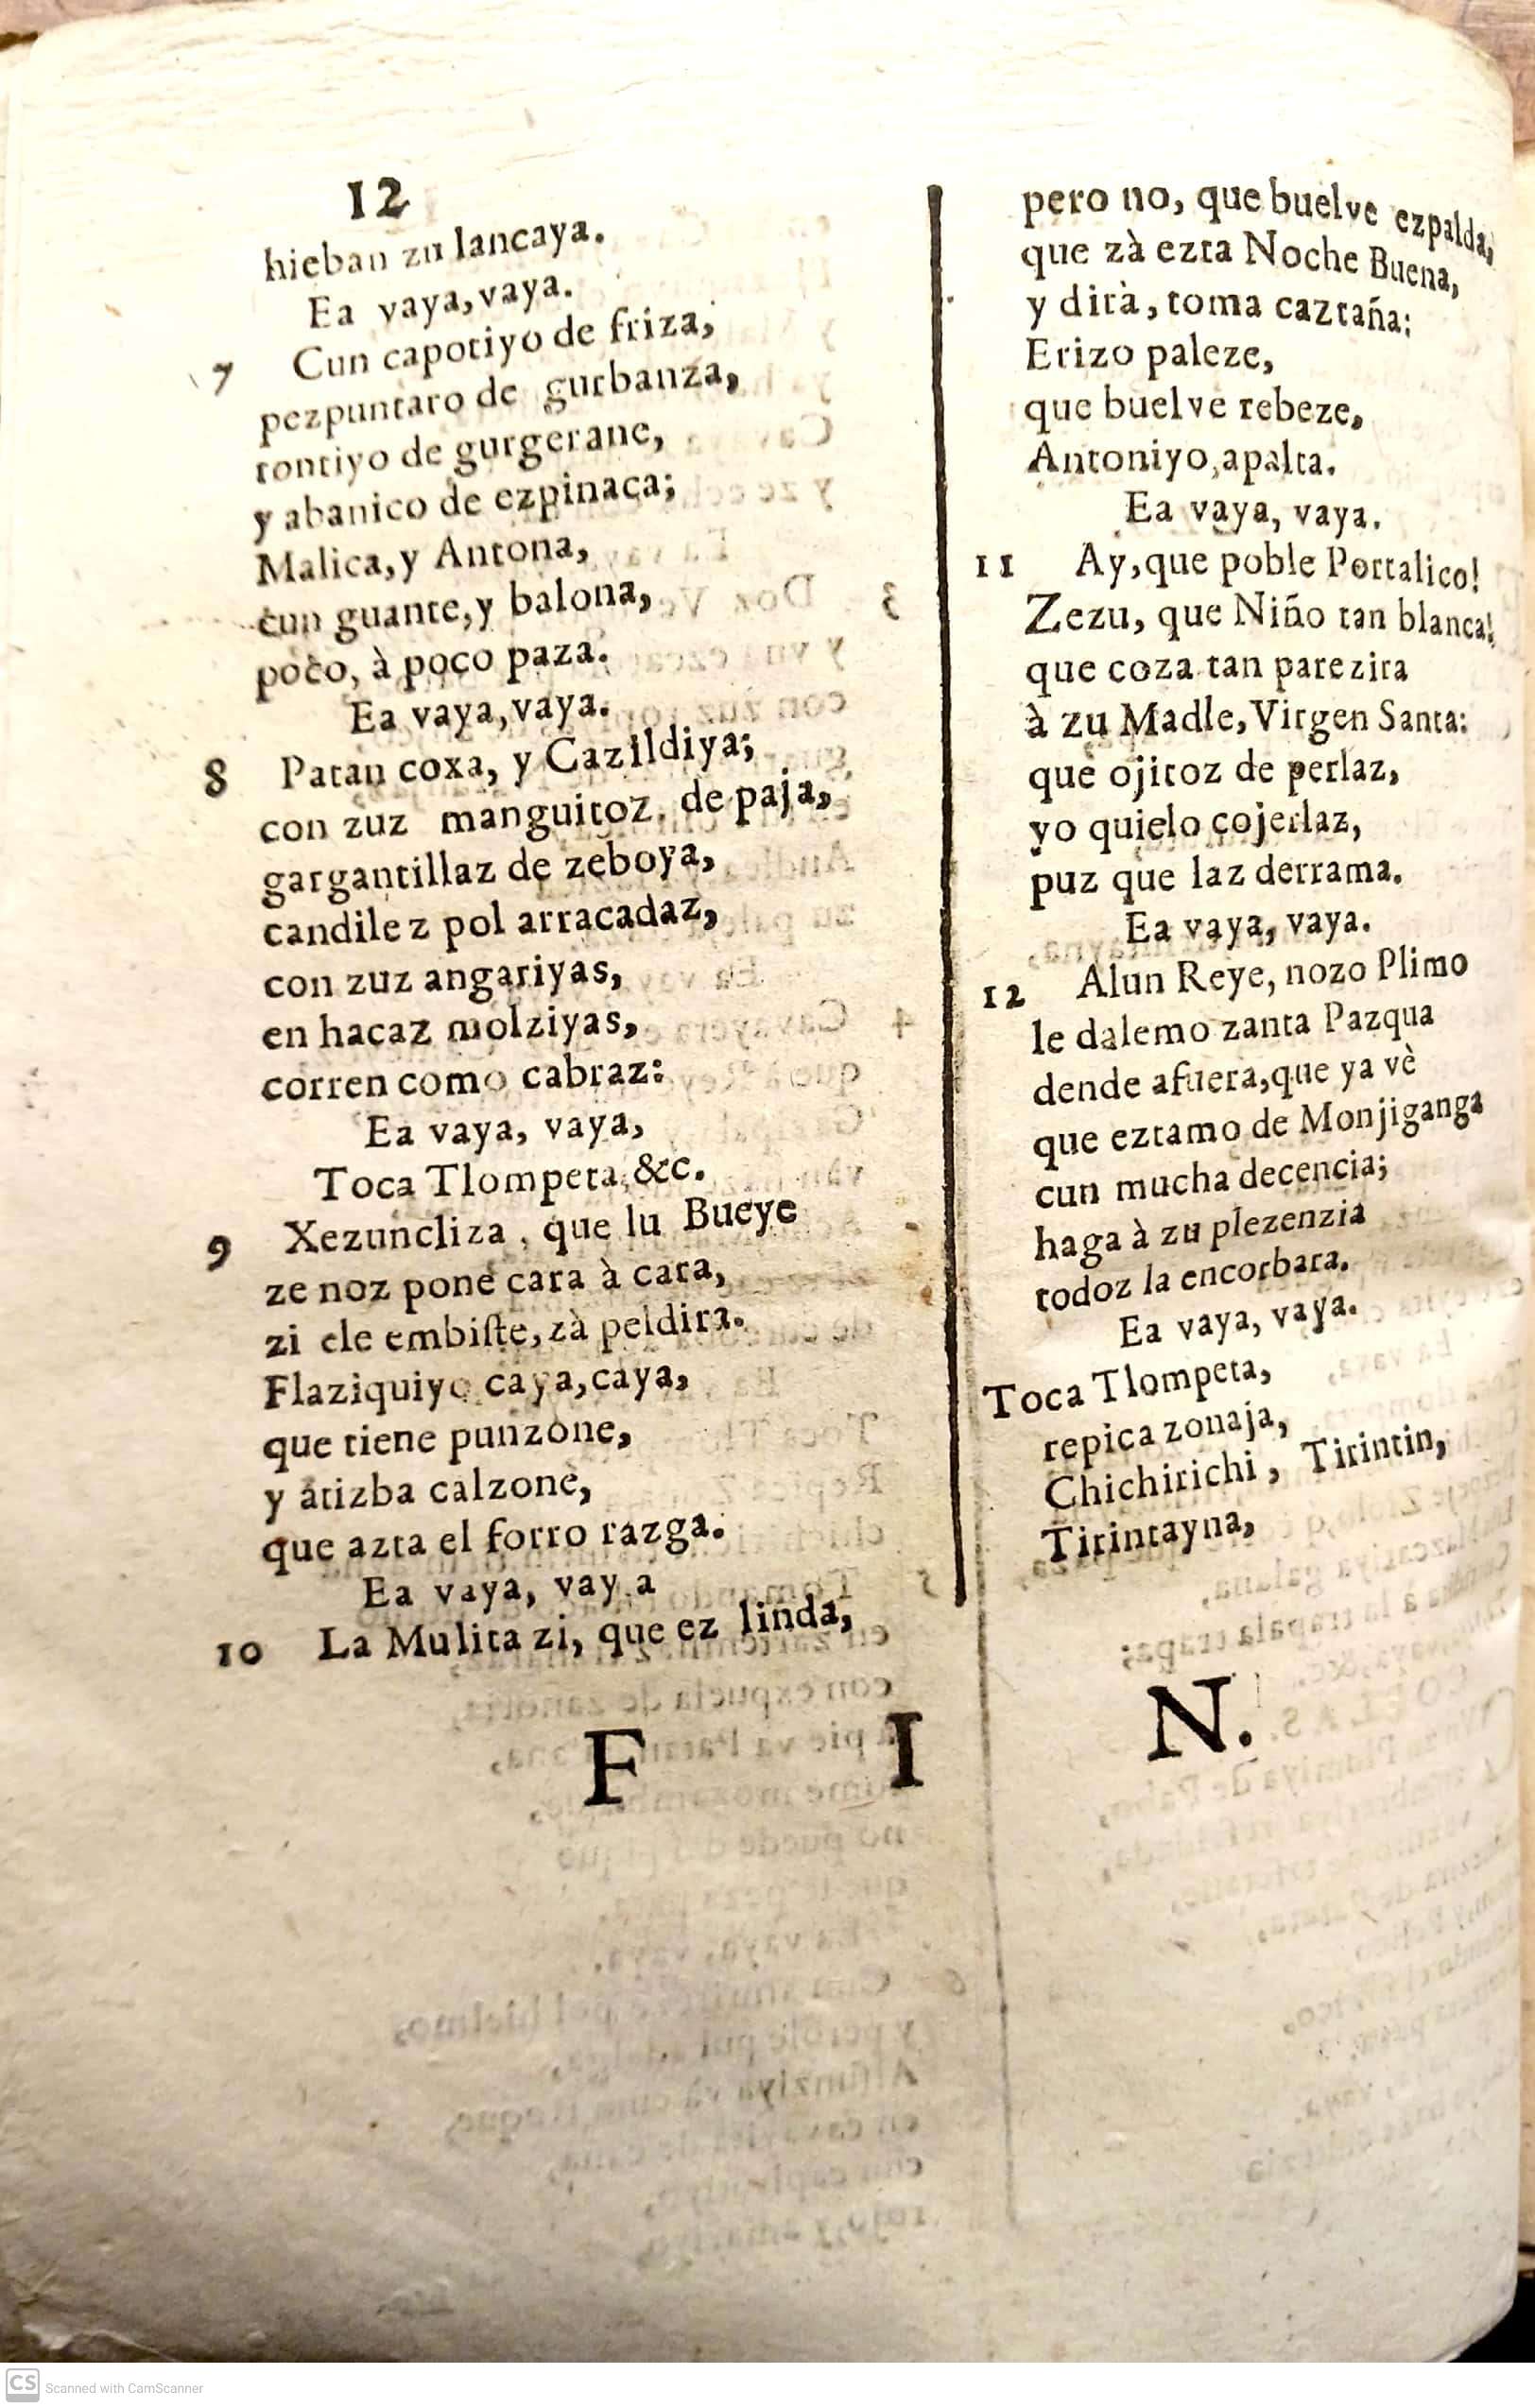 12
hieban zu lancaya.
Ea vaya, vaya.
7 Cun capotiyo de friza,
pezpuntaro de gurbanza,
tontiyo de gurgerane,
y abanico de ezpinaca;
Malica, y Antona,
cun guante, y balona,
poco, à poco paza.
Ea vaya, vaya.
8 Patan coxa, y Cazildiya;
con zuz manguitoz de paja,
gargantillaz de zeboya,
candilez pol arracadaz,
con zuz angariyas,
en hacaz molziyas,
corren como cabraz:
Ea vaya, vaya,
Toca Tlompeta, &c.
9 Xezuncliza, que lu Bueye
ze noz pone cara à cara,
zi ele embiſte, zà peldira.
Flaziquiyo caya, caya,
que tiene punzone,
y atizba calzone,
que azta el forro razga.
Ea vaya, vaya
10 La Mulita zi, que ez linda,
pero no, que buelve ezpalda,
que zà ezta Noche Buena,
y dirà, toma caztaña:
Erizo paleze,
que buelve rebeze,
Antoniyo, apalta.
Ea vaya, vaya.
11 Ay, que poble Portalico!
Zezu, que Niño tan blanca!
que coza tan parezira
à zu Madle, Virgen Santa:
que ojitoz de perlaz,
yo quielo cojerlaz,
puz que laz derrama.
Ea vaya, vaya.
12 Alun Reye, nozo Plimo
le dalemo zanta Pazqua
dende afuera, que ya vè
que eztamo de Monjiganga
cun mucha decencia;
haga à zu plezenzia
todoz la encorbara.
Ea vaya, vaya.
Toca Tlompeta,
repica zonaja,
Chichirichi, Tirintin,
Tirintayna,
F I N.
CS Scanned with CamScanner